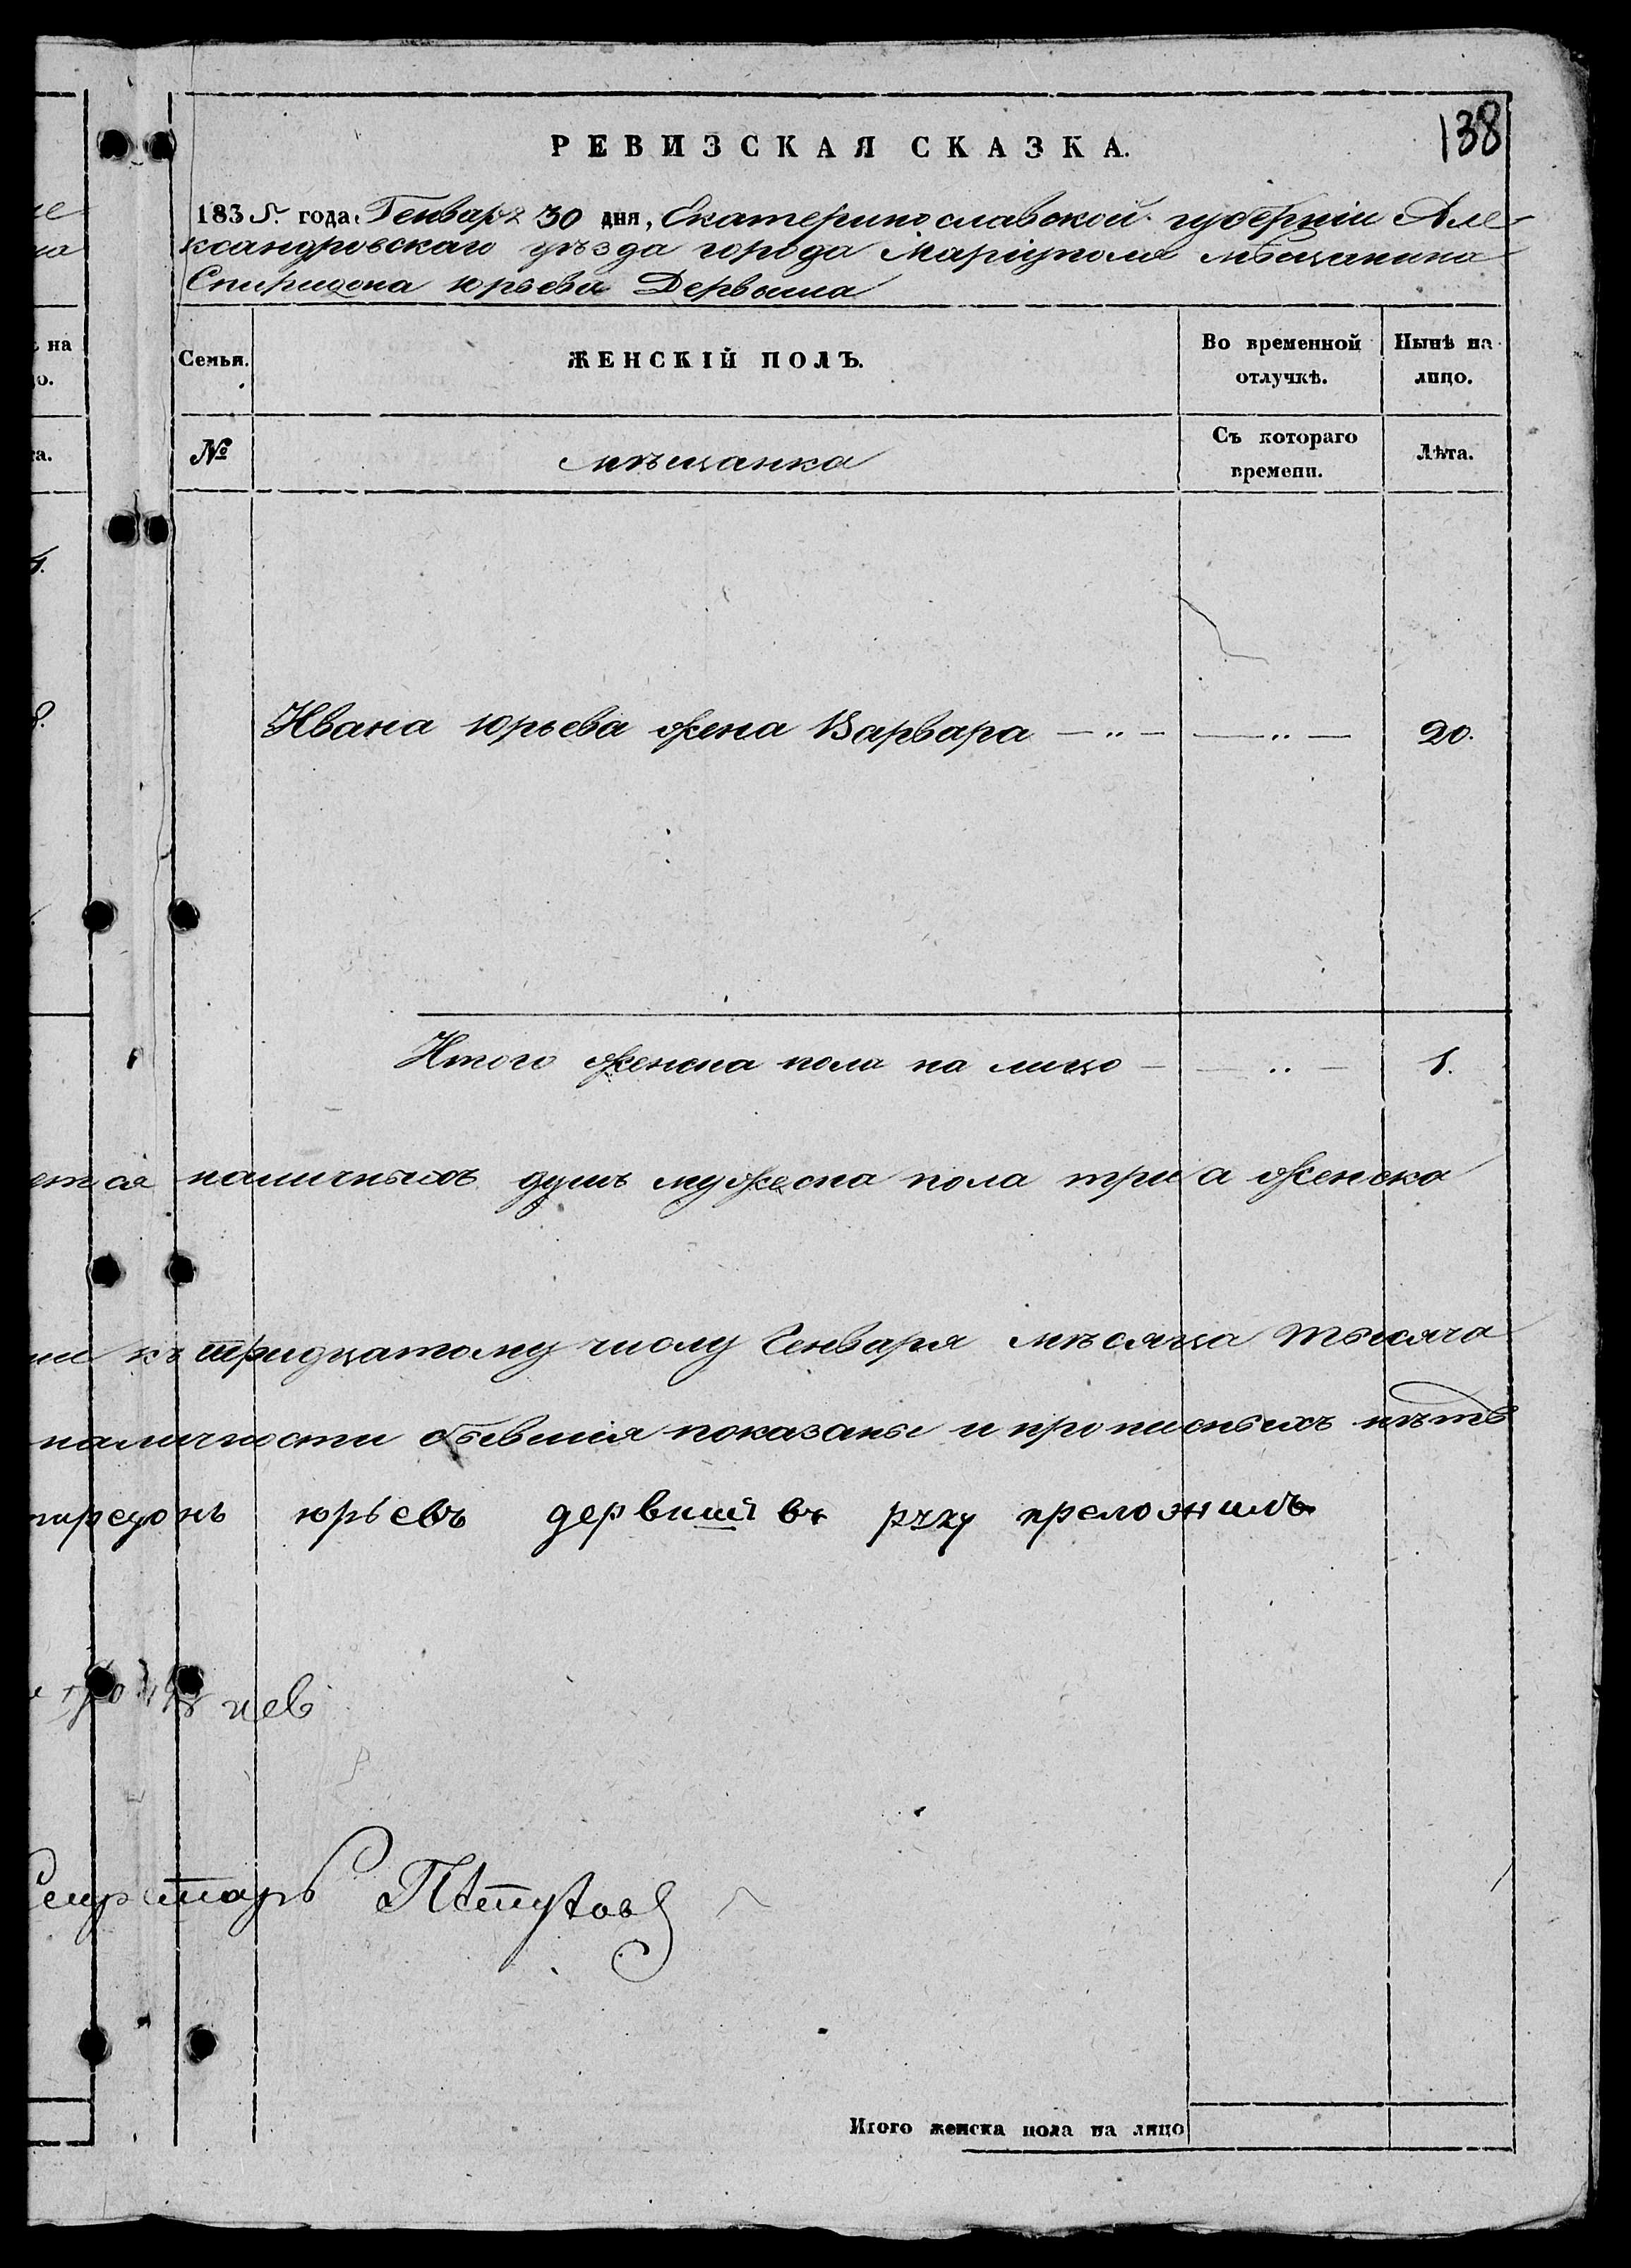 138
РЕВИЗСКАЯ СКАЗКА.
1835. года Генваря 30 дня, Екатеринославской губерніи Але
ксандровскаго уѣзда города Маріуполя мѣщанина
Спиридона Юрьева Дервыша
на
Семьи.
ЖЕНСКІЙ ПОЛЪ.
Во временной отлучкѣ.
Нынѣ на лицо.
№
мѣщанка
Съ котораго времени.
Лѣта.
Ивана Юрьева жена Варвара — „ — — „ — 20.
Итого женска пола на лицо — — „ — 1.
наличныхъ душъ мужеска пола три а женска
къ тридцатому числу Генваря мѣсяца тысяча
наличности бывшія показаны и прописныхъ нѣтъ
юрьевъ дервиш въ рукy преложилъ
чев
Секретарь
Итого женска пола на лицо